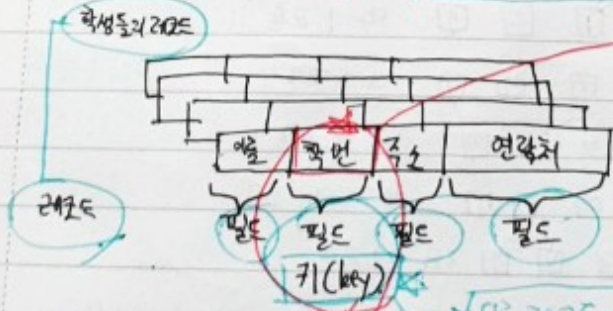 학생들의 레코드
이름 학번 주소 연락처
레코드
필드 필드 필드 필드
키(key)